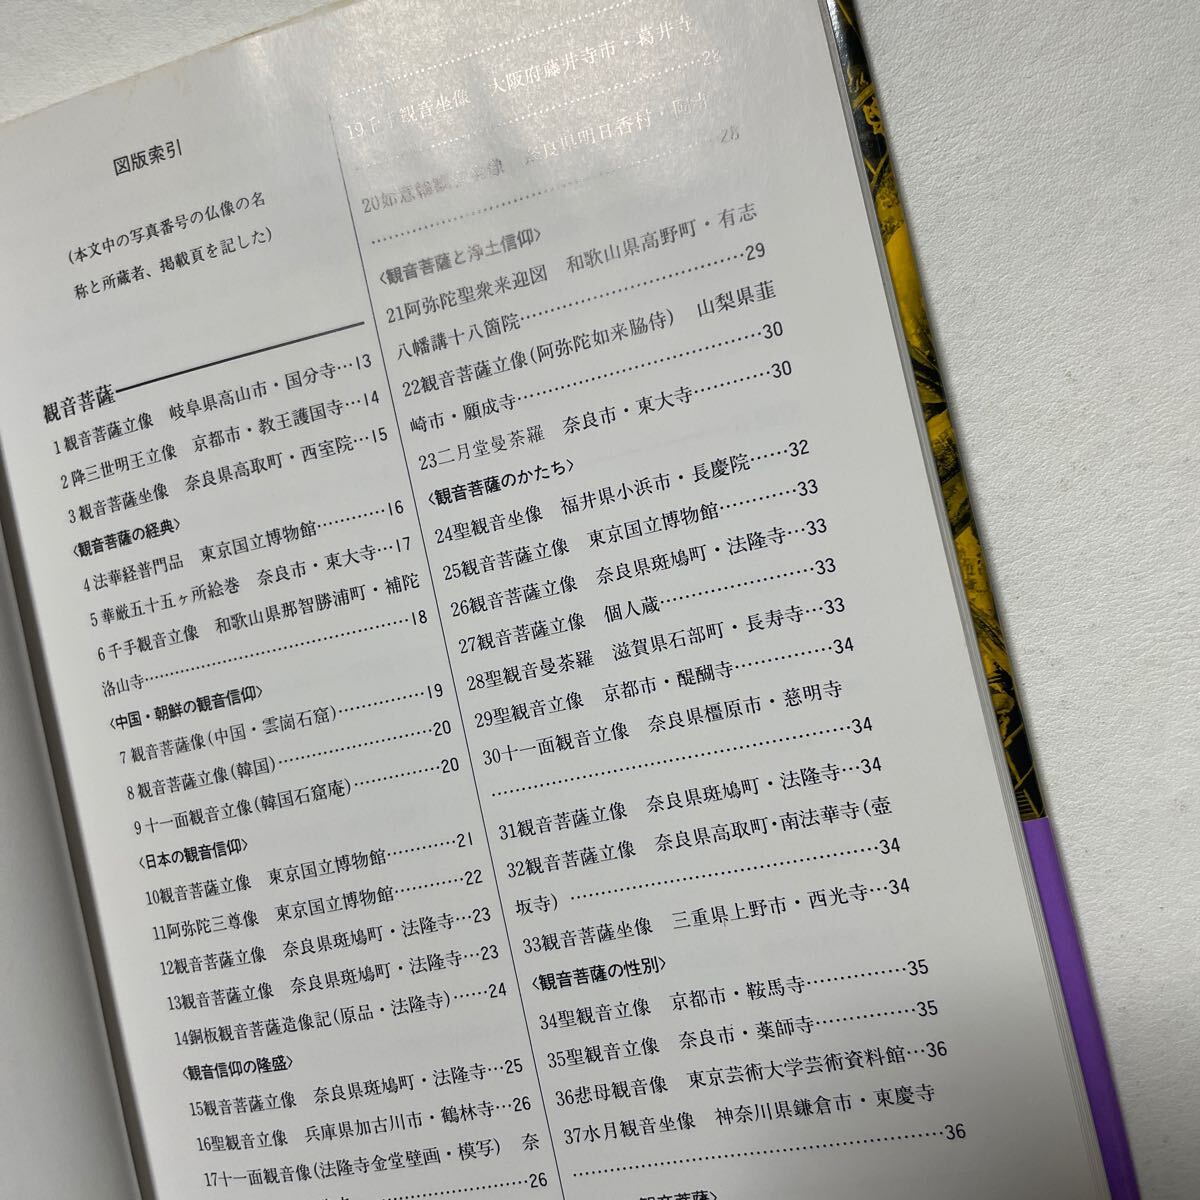 図版索引
(本文中の写真番号の仏像の名
称と所蔵者、掲載頁を記した)
観音菩薩
1観音菩薩立像　岐阜県高山市・国分寺…13
2降三世明王立像　京都市・教王護国寺…14
3観音菩薩坐像　奈良県高取町・西室院…15
〈観音菩薩の経典〉
4法華経普門品　東京国立博物館…………16
5華厳五十五ヶ所絵巻　奈良市・東大寺…17
6千手観音立像　和歌山県那智勝浦町・補陀
洛山寺……………………………………18
〈中国・朝鮮の観音信仰〉
7観音菩薩像(中国・雲崗石窟)……………19
8観音菩薩立像(韓国)………………………20
9十一面観音立像(韓国石窟庵)……………20
〈日本の観音信仰〉
10観音菩薩立像　東京国立博物館…………21
11阿弥陀三尊像　東京国立博物館…………22
12観音菩薩立像　奈良県斑鳩町・法隆寺…23
13観音菩薩立像　奈良県斑鳩町・法隆寺…23
14銅板観音菩薩造像記(原品・法隆寺)……24
〈観音信仰の隆盛〉
15観音菩薩立像　奈良県斑鳩町・法隆寺…25
16聖観音立像　兵庫県加古川市・鶴林寺…26
17十一面観音像(法隆寺金堂壁画・模写)　奈
26
19千手観音坐像　大阪府藤井寺市・葛井寺
……………………………………………28
20如意輪観音坐像　奈良県明日香村・岡寺
……………………………………………28
〈観音菩薩と浄土信仰〉
21阿弥陀聖衆来迎図　和歌山県高野町・有志
八幡講十八箇院……………………………29
22観音菩薩立像(阿弥陀如来脇侍)　山梨県韮
崎市・願成寺………………………………30
23二月堂曼荼羅　奈良市・東大寺…………30
〈観音菩薩のかたち〉
24聖観音坐像　福井県小浜市・長慶院……32
25観音菩薩立像　東京国立博物館…………33
26観音菩薩立像　奈良県斑鳩町・法隆寺…33
27観音菩薩立像　個人蔵……………………33
28聖観音曼荼羅　滋賀県石部町・長寿寺…33
29聖観音立像　京都市・醍醐寺……………34
30十一面観音立像　奈良県橿原市・慈明寺
……………………………………………34
31観音菩薩立像　奈良県斑鳩町・法隆寺…34
32観音菩薩立像　奈良県高取町・南法華寺(壺
坂寺)………………………………………34
33観音菩薩坐像　三重県上野市・西光寺…34
〈観音菩薩の性別〉
34聖観音立像　京都市・鞍馬寺……………35
35聖観音立像　奈良市・薬師寺……………35
36悲母観音像　東京芸術大学芸術資料館…36
37水月観音坐像　神奈川県鎌倉市・東慶寺
……………………………………………36
観音菩薩〉